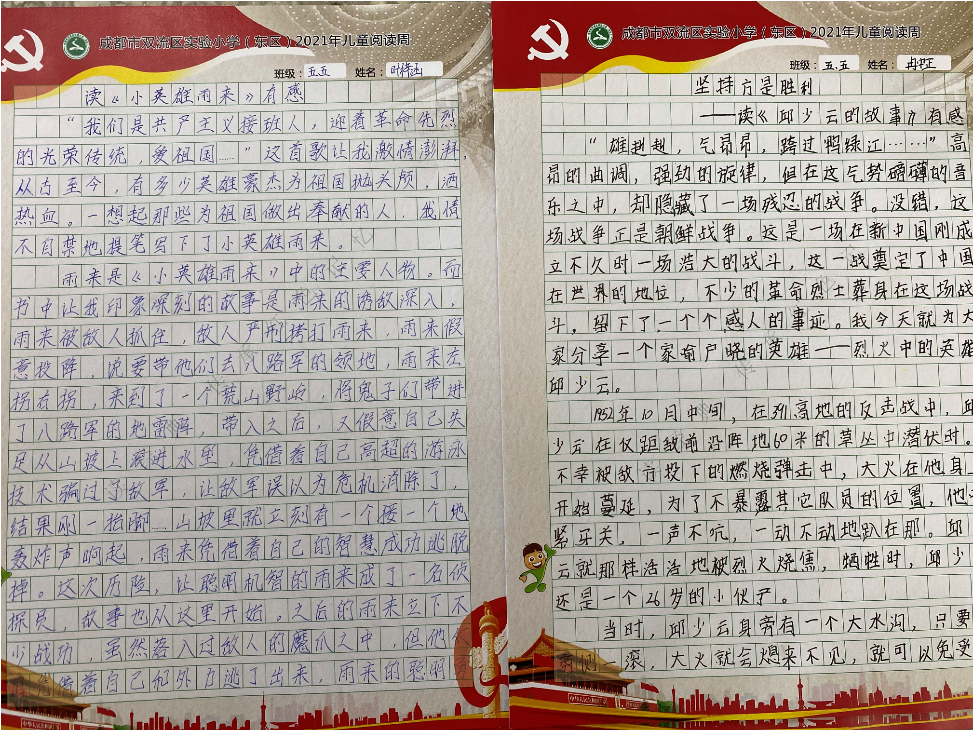 成都市双流区实验小学（东区）2021年儿童阅读周
班级：五五 姓名：叶梓涵
读《小英雄雨来》有感
“我们是共产主义接班人，迎着革命先烈
的光荣传统，爱祖国……”这首歌让我激情澎湃，
从古至今，有多少英雄豪杰为祖国抛头颅，洒
热血。一想起那些为祖国做出奉献的人，我情
不自禁地提笔写下了小英雄雨来。
雨来是《小英雄雨来》中的主要人物。而
书中让我印象深刻的故事是雨来的诱敌深入，
雨来被敌人抓住，敌人严刑拷打雨来，雨来假
意投降，说要带他们去八路军的领地，雨来左
拐右拐，来到了一个荒山野岭，将鬼子们带进
了八路军的地雷阵，带入之后，又假意自己失
足从山坡上滚进水里，凭借着自己高超的游泳
技术骗过了敌军，让敌军误以为危机消除了，
结果刚一抬脚……山坡里就立刻有一个接一个地
轰炸声响起，雨来凭借着自己的智慧成功逃脱
掉。这次历险，让聪明机智的雨来成了一名侦
探员，故事也从这里开始。之后的雨来立下不
少战功，虽然落入过敌人的魔爪之中，但他
借着自己和外力逃了出来，雨来的聪明
成都市双流区实验小学（东区）2021年儿童阅读周
班级：五、五 姓名：冉梓正
坚持方是胜利
——读《邱少云的故事》有感
“雄赳赳，气昂昂，跨过鸭绿江……”高
昂的曲调，强劲的旋律，但在这气势磅礴的音
乐之中，却隐藏了一场残忍的战争。没错，这
场战争正是朝鲜战争。这是一场在新中国刚成
立不久时一场浩大的战斗，这一战奠定了中国
在世界的地位，不少的革命烈士葬身在这场战
斗，留下了一个个感人的事迹。我今天就为大
家分享一个家喻户晓的英雄——烈火中的英雄
邱少云。
1952年10月中旬，在391高地的反击战中，邱
少云在仅距敌前沿阵地60米的草丛中潜伏时。
不幸被敌方投下的燃烧弹击中，大火在他身上
开始蔓延，为了不暴露其它队员的位置，他
紧牙关，一声不吭，一动不动地趴在那！邱
云就那样活活地被烈火烧焦，牺牲时，邱少
还是一个26岁的小伙子。
当时，邱少云身旁有一个大水沟，只要
一滚，大火就会熄来不见，就可以免受